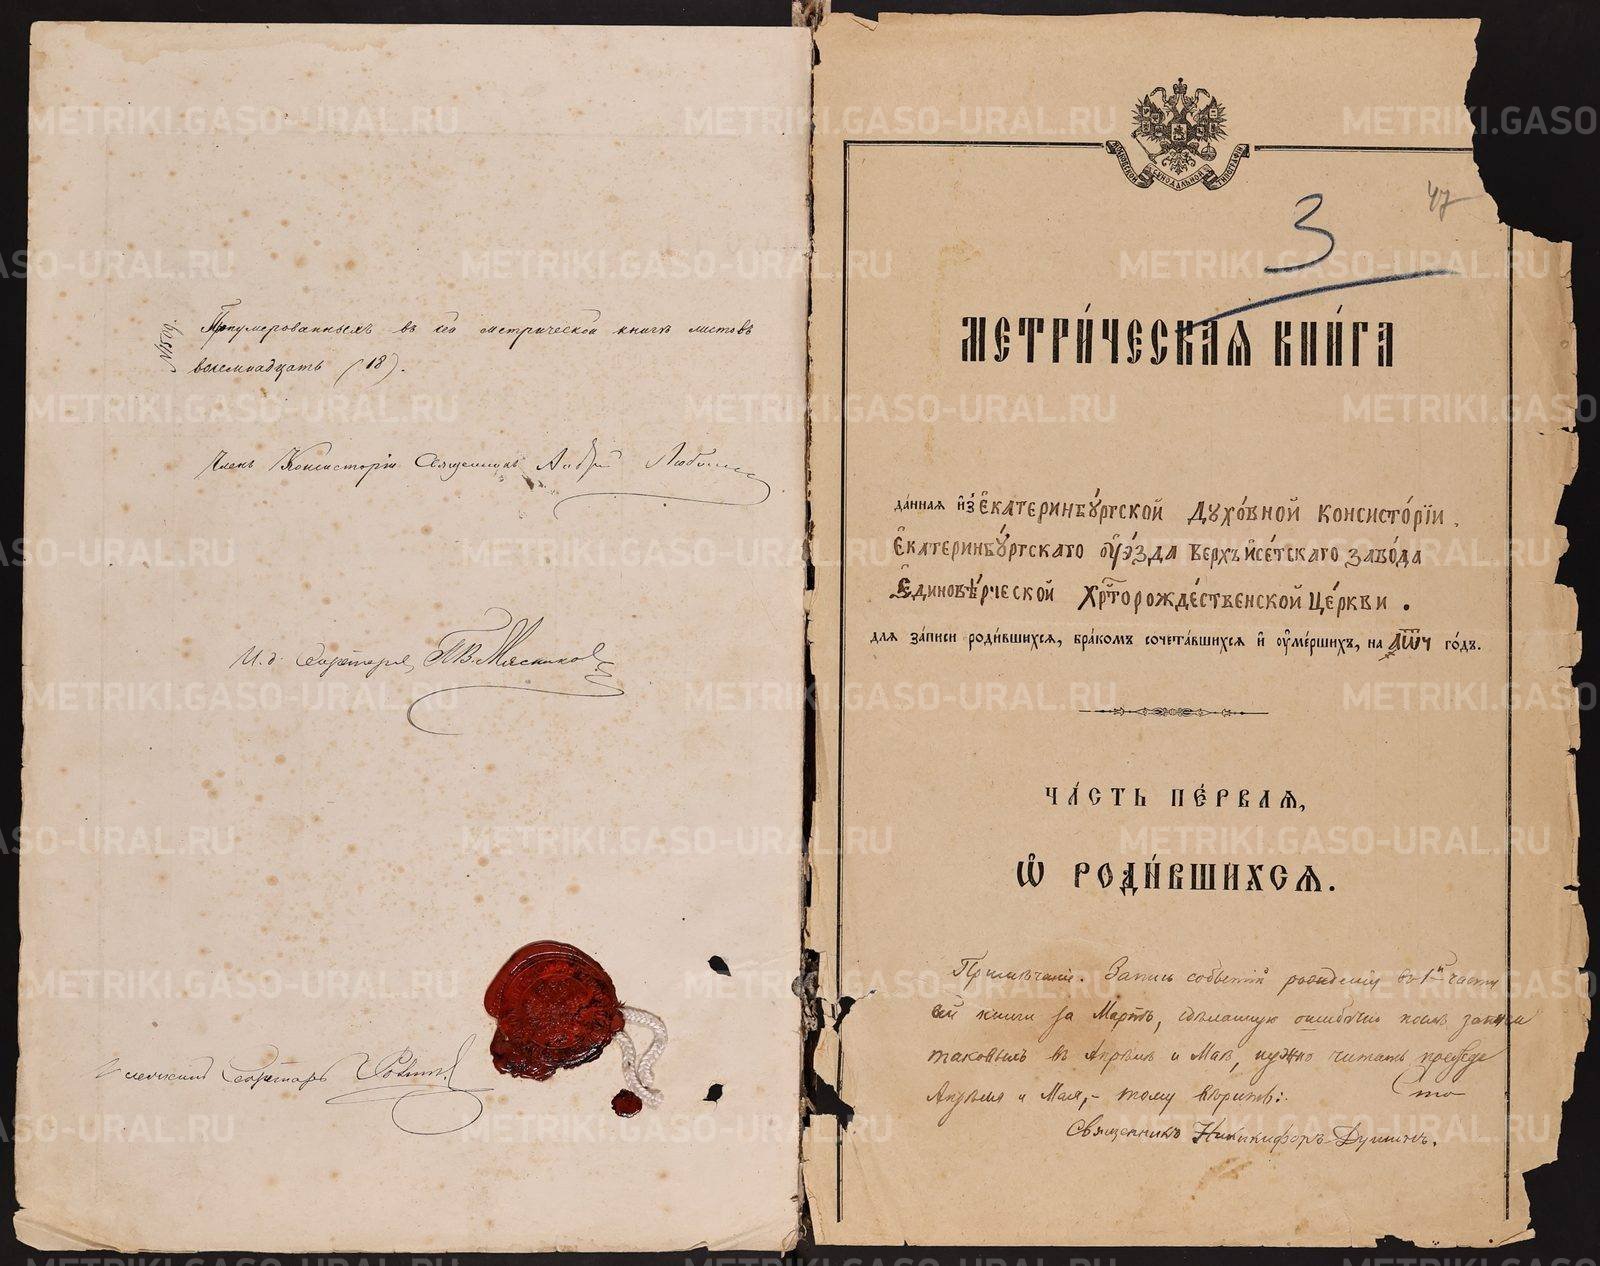 № 1519.
Пронумерованныхъ въ сей метрической книгѣ листовъ
восемнадцать (18).
Членъ Консисторіи Священникъ Андрей
И. д. Секретаря П В Мясников
Секретарь
МОСКОВСКОЙ СѴНОДАЛЬНОЙ ТИПОГРАФІИ
47
3
МЕТРИ́ЧЕСКАѦ КНИ́ГА
да́ннаѧ и҆з̾ Є҆катеринбꙋ́ргской Дꙋхо́вной Консисто́рїи.
Є҆катеринбꙋ́ргскаго ᲂу҆ѣ́зда Верхъ-и҆се́тскаго заво́да
Є҆диновѣ́рческой Хрⷭ҇торожде́ственской Це́ркви.
длѧ за́писи роди́вшихсѧ, бра́комъ сочета́вшихсѧ и҆ ᲂу҆ме́ршихъ, на ҂аѿч го́дъ.
ЧА́СТЬ ПЕ́РВАѦ,
Ѽ РОДИ́ВШИХСѦ.
Примѣчаніе. Запись событій рожденія въ 1й части
сей книги за Мартъ, сдѣланную ошибочно послѣ записи
таковыхъ въ Апрѣлѣ и Маѣ, нужно читать прежде
Апрѣля и Мая,- тому вѣрить:.
Священникъ Никифоръ
METRIKI.GASO-URAL.RU